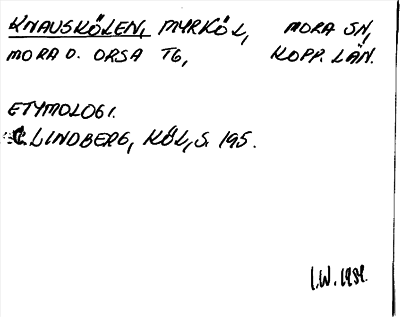 KNAUSKÖLEN, MYRKÖL, MORA SN,
MORA O. ORSA TG, KOPP. LÄN.
ETYMOLOGI.
C. LINDBERG, KÖL, S. 195.
I.W. 1989.